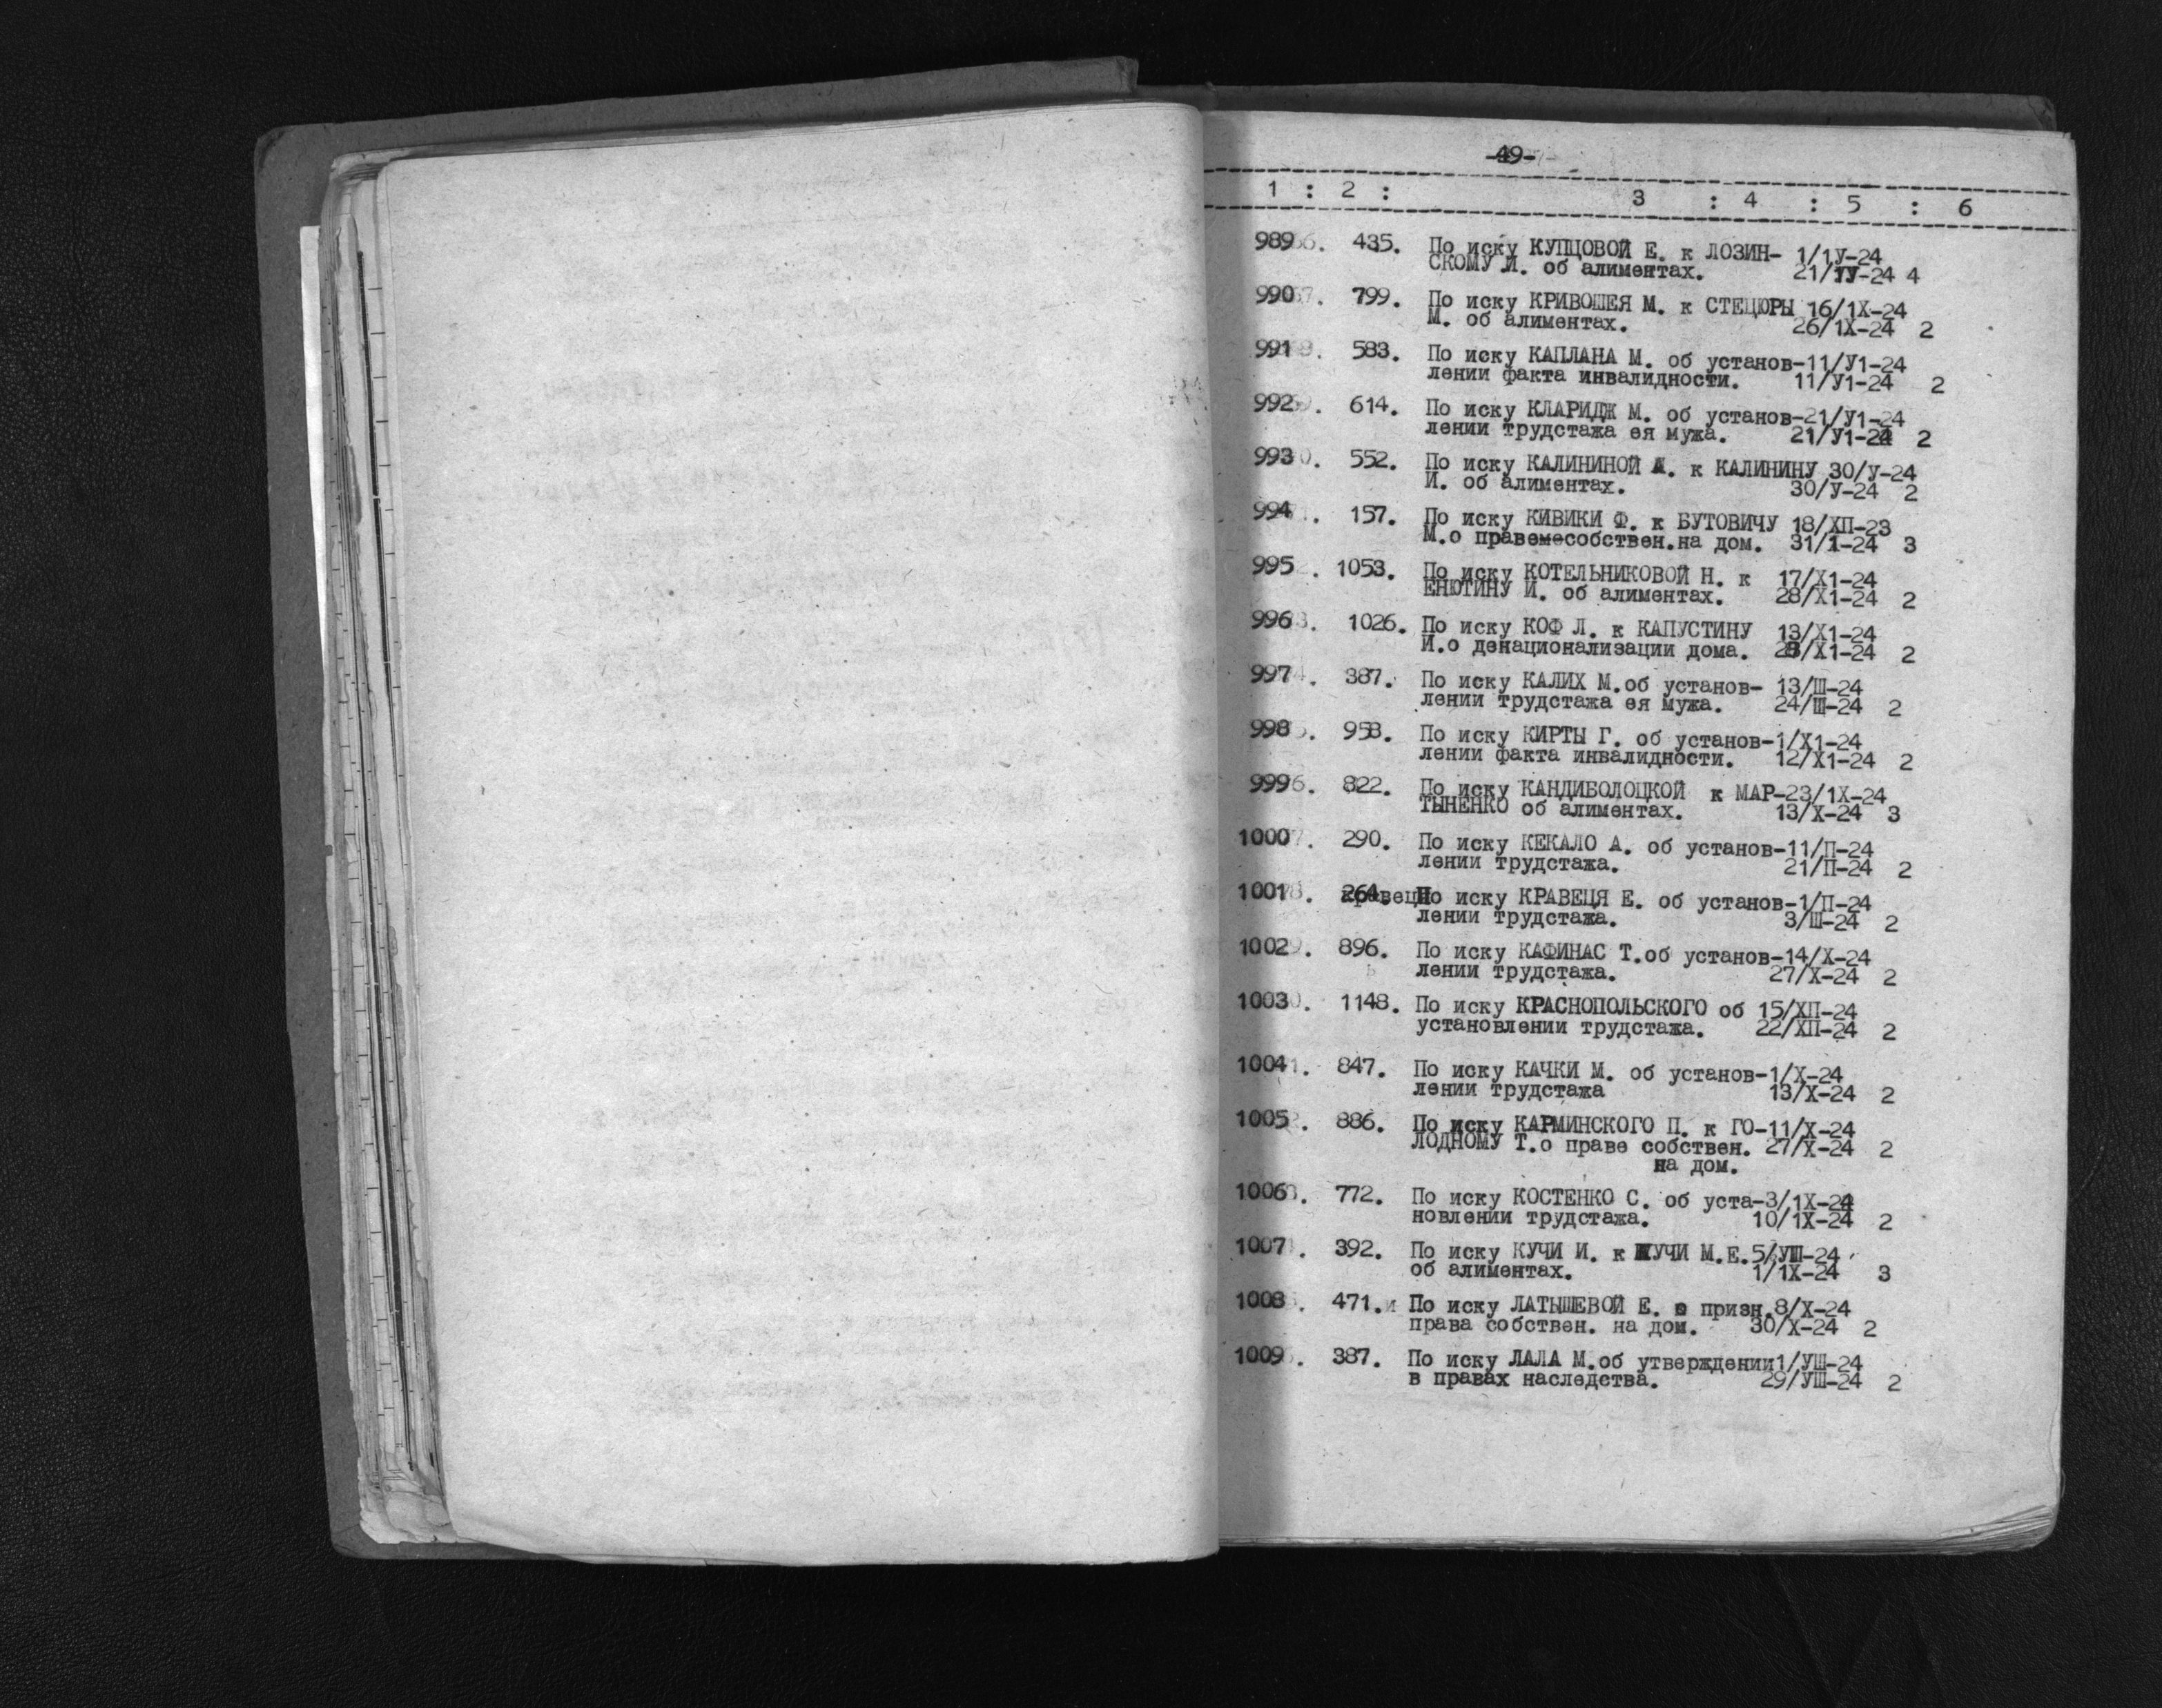 -49-
1 : 2 : 3 : 4 : 5 : 6
989. 435. По иску КУПЦОВОЙ Е. к ЛОЗИН- 1/1У-24
СКОМУ И. об алиментах. 21/1У-24 4
990. 799. По иску КРИВОШЕЯ М. к СТЕЦЮРЫ 16/1Х-24
М. об алиментах. 26/1Х-24 2
991. 583. По иску КАПЛАНА М. об установ-11/У1-24
лении факта инвалидности. 11/У1-24 2
992. 614. По иску КЛАРИДЖ М. об установ-21/У1-24
лении трудстажа ея мужа. 21/У1-24 2
993. 552. По иску КАЛИНИНОЙ А. к КАЛИНИНУ 30/У-24
И. об алиментах. 30/У-24 2
994. 157. По иску КИВИКИ Ф. к БУТОВИЧУ 18/ХП-23
М.о правемесобствен.на дом. 31/1-24 3
995. 1053. По иску КОТЕЛЬНИКОВОЙ Н. к 17/Х1-24
ЕНЮТИНУ И. об алиментах. 28/Х1-24 2
996. 1026. По иску КОФ Л. к КАПУСТИНУ 13/Х1-24
И.о денационализации дома. 28/Х1-24 2
997. 387. По иску КАЛИХ М.об установ- 13/Ш-24
лении трудстажа ея мужа. 24/Ш-24 2
998. 958. По иску КИРТЫ Г. об установ-1/Х1-24
лении факта инвалидности. 12/Х1-24 2
999. 822. По иску КАНДИБОЛОЦКОЙ к МАР-23/1Х-24
ТЫНЕНКО об алиментах. 13/Х-24 3
1000. 290. По иску КЕКАЛО А. об установ-11/П-24
лении трудстажа. 21/П-24 2
1001. 264. По иску КРАВЕЦЯ Е. об установ-1/П-24
лении трудстажа. 3/Ш-24 2
1002. 896. По иску КАФИНАС Т.об установ-14/Х-24
лении трудстажа. 27/Х-24 2
1003. 1148. По иску КРАСНОПОЛЬСКОГО об 15/ХП-24
установлении трудстажа. 22/ХП-24 2
1004. 847. По иску КАЧКИ М. об установ-1/Х-24
лении трудстажа 13/Х-24 2
1005. 886. По иску КАРМИНСКОГО П. к ГО-11/Х-24
ЛОДНОМУ Т.о праве собствен. 27/Х-24 2
на дом.
1006. 772. По иску КОСТЕНКО С. об уста-3/1Х-24
новлении трудстажа. 10/1Х-24 2
1007. 392. По иску КУЧИ И. к КУЧИ М.Е.5/УШ-24
об алиментах. 1/1Х-24 3
1008. 471.и По иску ЛАТЫШЕВОЙ Е. о призн.8/Х-24
права собствен. на дом. 30/Х-24 2
1009. 387. По иску ЛАЛА М.об утверждении1/УШ-24
в правах наследства. 29/УШ-24 2